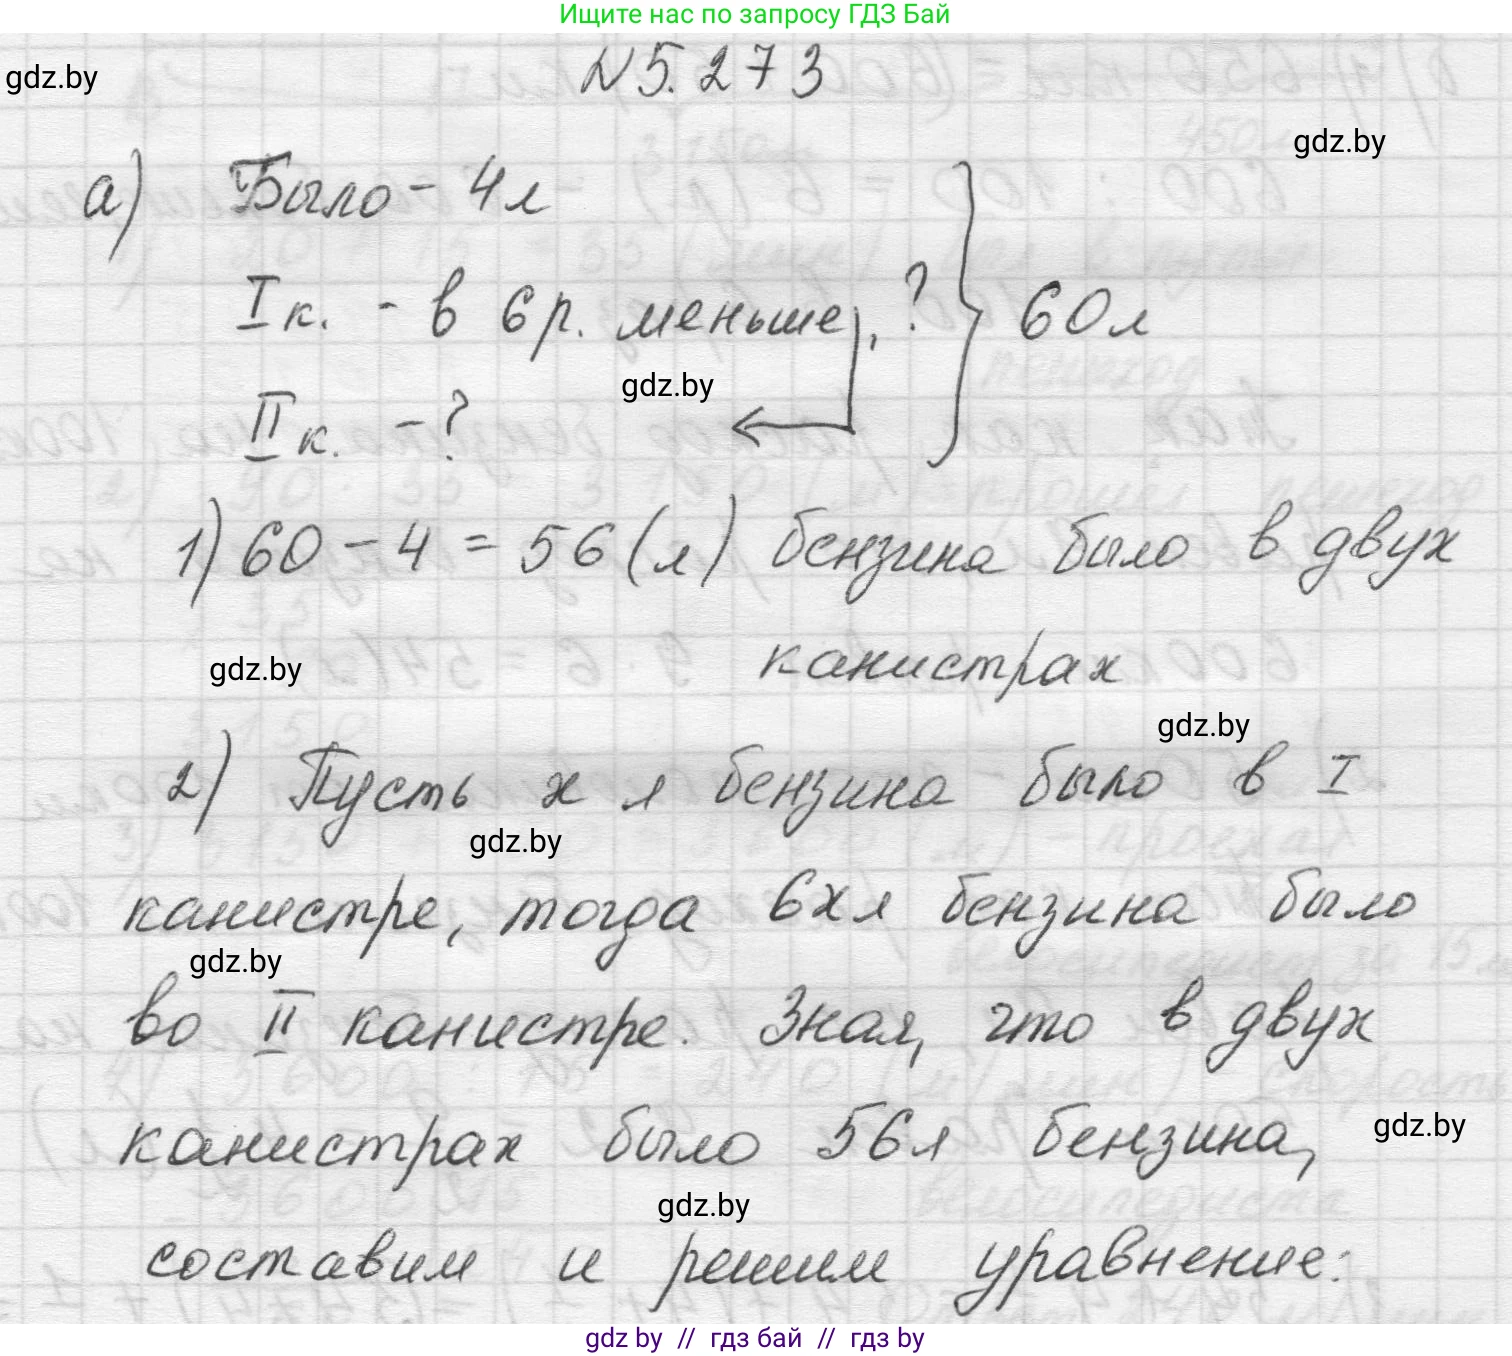 Ищите нас по запросу ГДЗ Бай
N 5.273
gdz.by
gdz.by
а) Было - 4 л
I к. - в 6 р. меньше, ? 60 л
gdz.by
II к. - ?
1) 60 - 4 = 56 (л) бензина было в двух
канистрах
gdz.by
gdz.by
2) Пусть х л бензина было в I
gdz.by
канистре, тогда 6х л бензина было
gdz.by
во II канистре. Зная, что в двух
канистрах было 56 л бензина,
gdz.by
gdz.by
составим и решим уравнение:
gdz by // гдз бай // гдз by